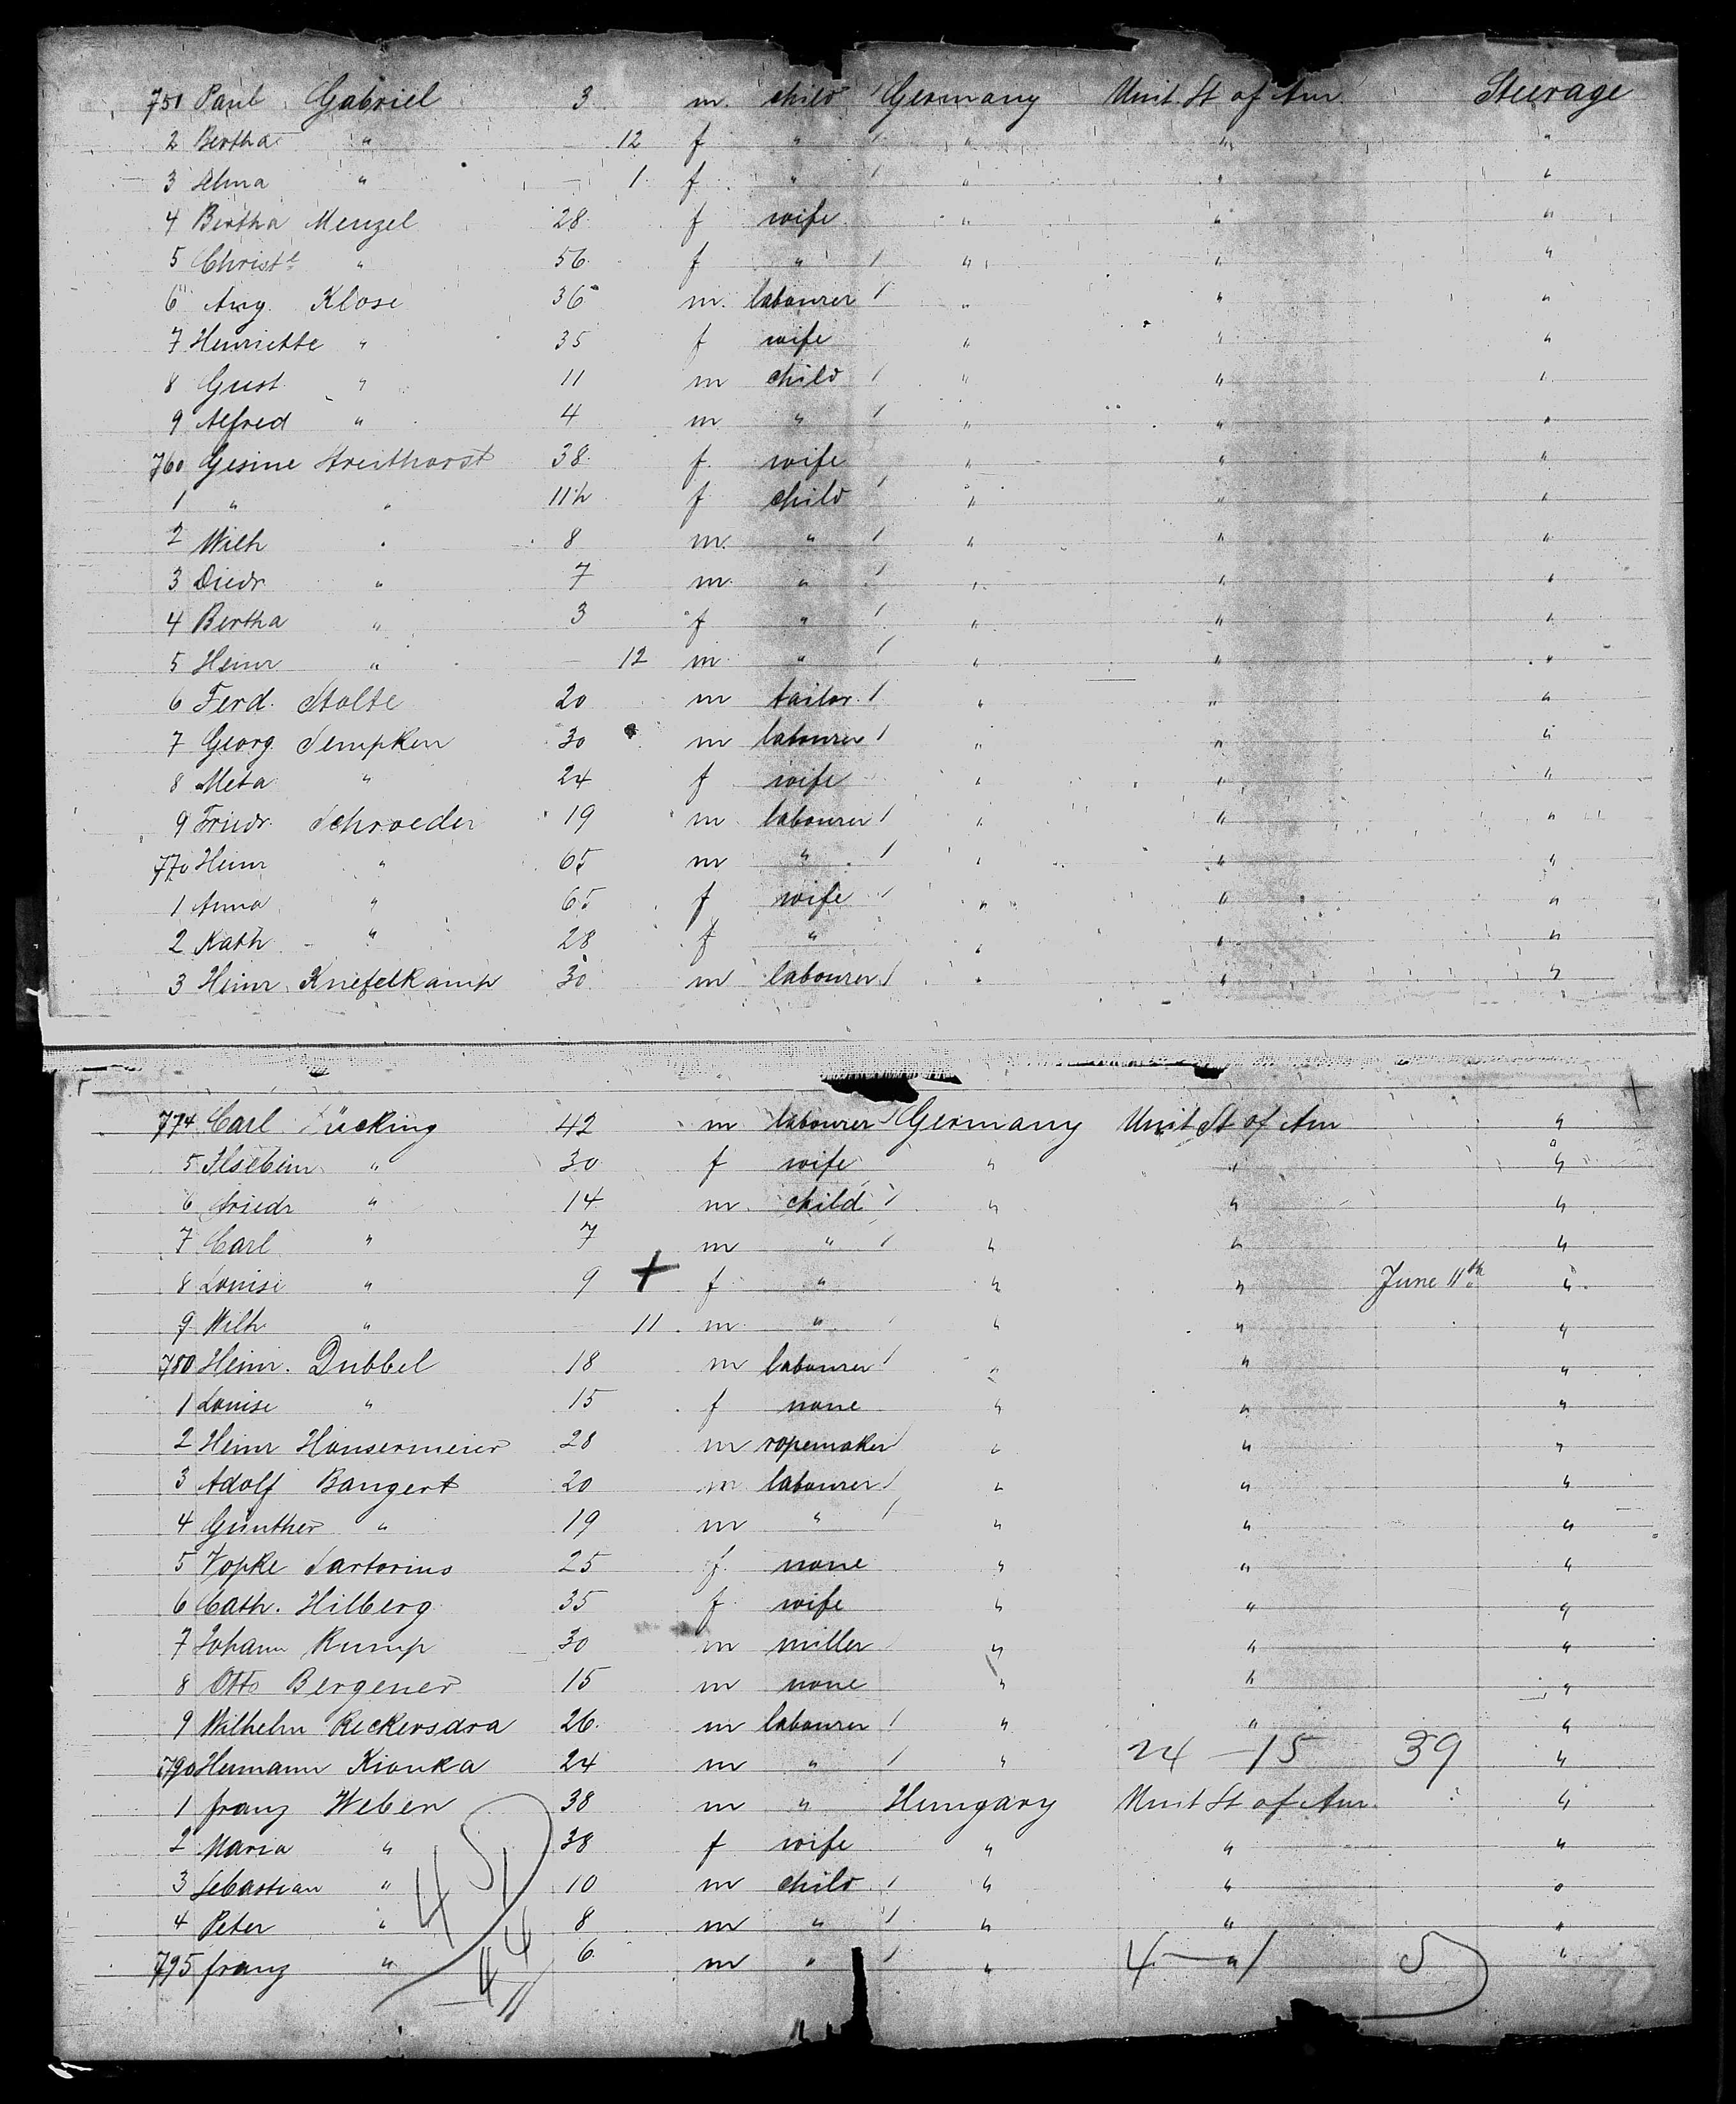 751 Paul Gabriel 3 m. child / Germany Unit. St of Am. Steerage
2 Bertha " — 12 f " / " " "
3 Alma " — 1 f " / " " "
4 Bertha Menzel 28 f wife " " "
5 Christe " 56 f " / " " "
6 Aug. Klose 36 m. labourer / " " "
7 Henriette " 35 f wife " " "
8 Gust. " 11 m child / " " "
9 Alfred " 4 m " / " " "
760 Gesine Streithorst 38 f. wife " " "
1 " " 11½ f child / " " "
2 Wilh " 8 m. " / " " "
3 Diedr. " 7 m. " / " " "
4 Bertha " 3 f " / " " "
5 Heinr " — 12 m " / " " "
6 Ferd. Stolte 20 m tailor / " " "
7 Georg Sempken 30 m labourer / " " "
8 Meta " 24 f wife " " "
9 Friedr. Schroeder 19 m labourer / " " "
770 Heinr " 65 m " / " " "
1 Anna " 65 f wife / " " "
2 Kath " 28 f " " " "
3 Heinr. Kniefelkamp 30 m labourer / " " "
774 Carl ücking 42 m labourer / Germany Unit St of Am "
5 Ilsebein " 30 f wife " " "
6 Friedr " 14 m. child / " " "
7 Carl " 7 m " / " " "
8 Louise " 9 + f " " " June 11th "
9 Wilh " 11 m " / " " "
780 Heinr. Dubbel 18 m labourer / " " "
1 Louise " 15 f none " " "
2 Heinr Hausermeier 28 m ropemaker / " " "
3 Adolf Bangert 20 m labourer / " " "
4 Günther " 19 m " / " " "
5 Vopke Sartorius 25 f none " " "
6 Cath. Hilberg 35 f wife " " "
7 Johann Rump 30 m miller " " "
8 Otto Bergener 15 m none " " "
9 Wilhelm Reckersdra 26 m labourer / " " "
790 Hermann Kionka 24 m " / " 24 — 15 39 "
1 franz Weber 38 m " Hungary Unit St of Am. "
2 Maria " 38 f wife " " "
3 Sebastian " 10 m child / " " "
4 Peter " 8 m " / " " "
795 franz " 6 m " / " 4 — 1 5 "
45
44